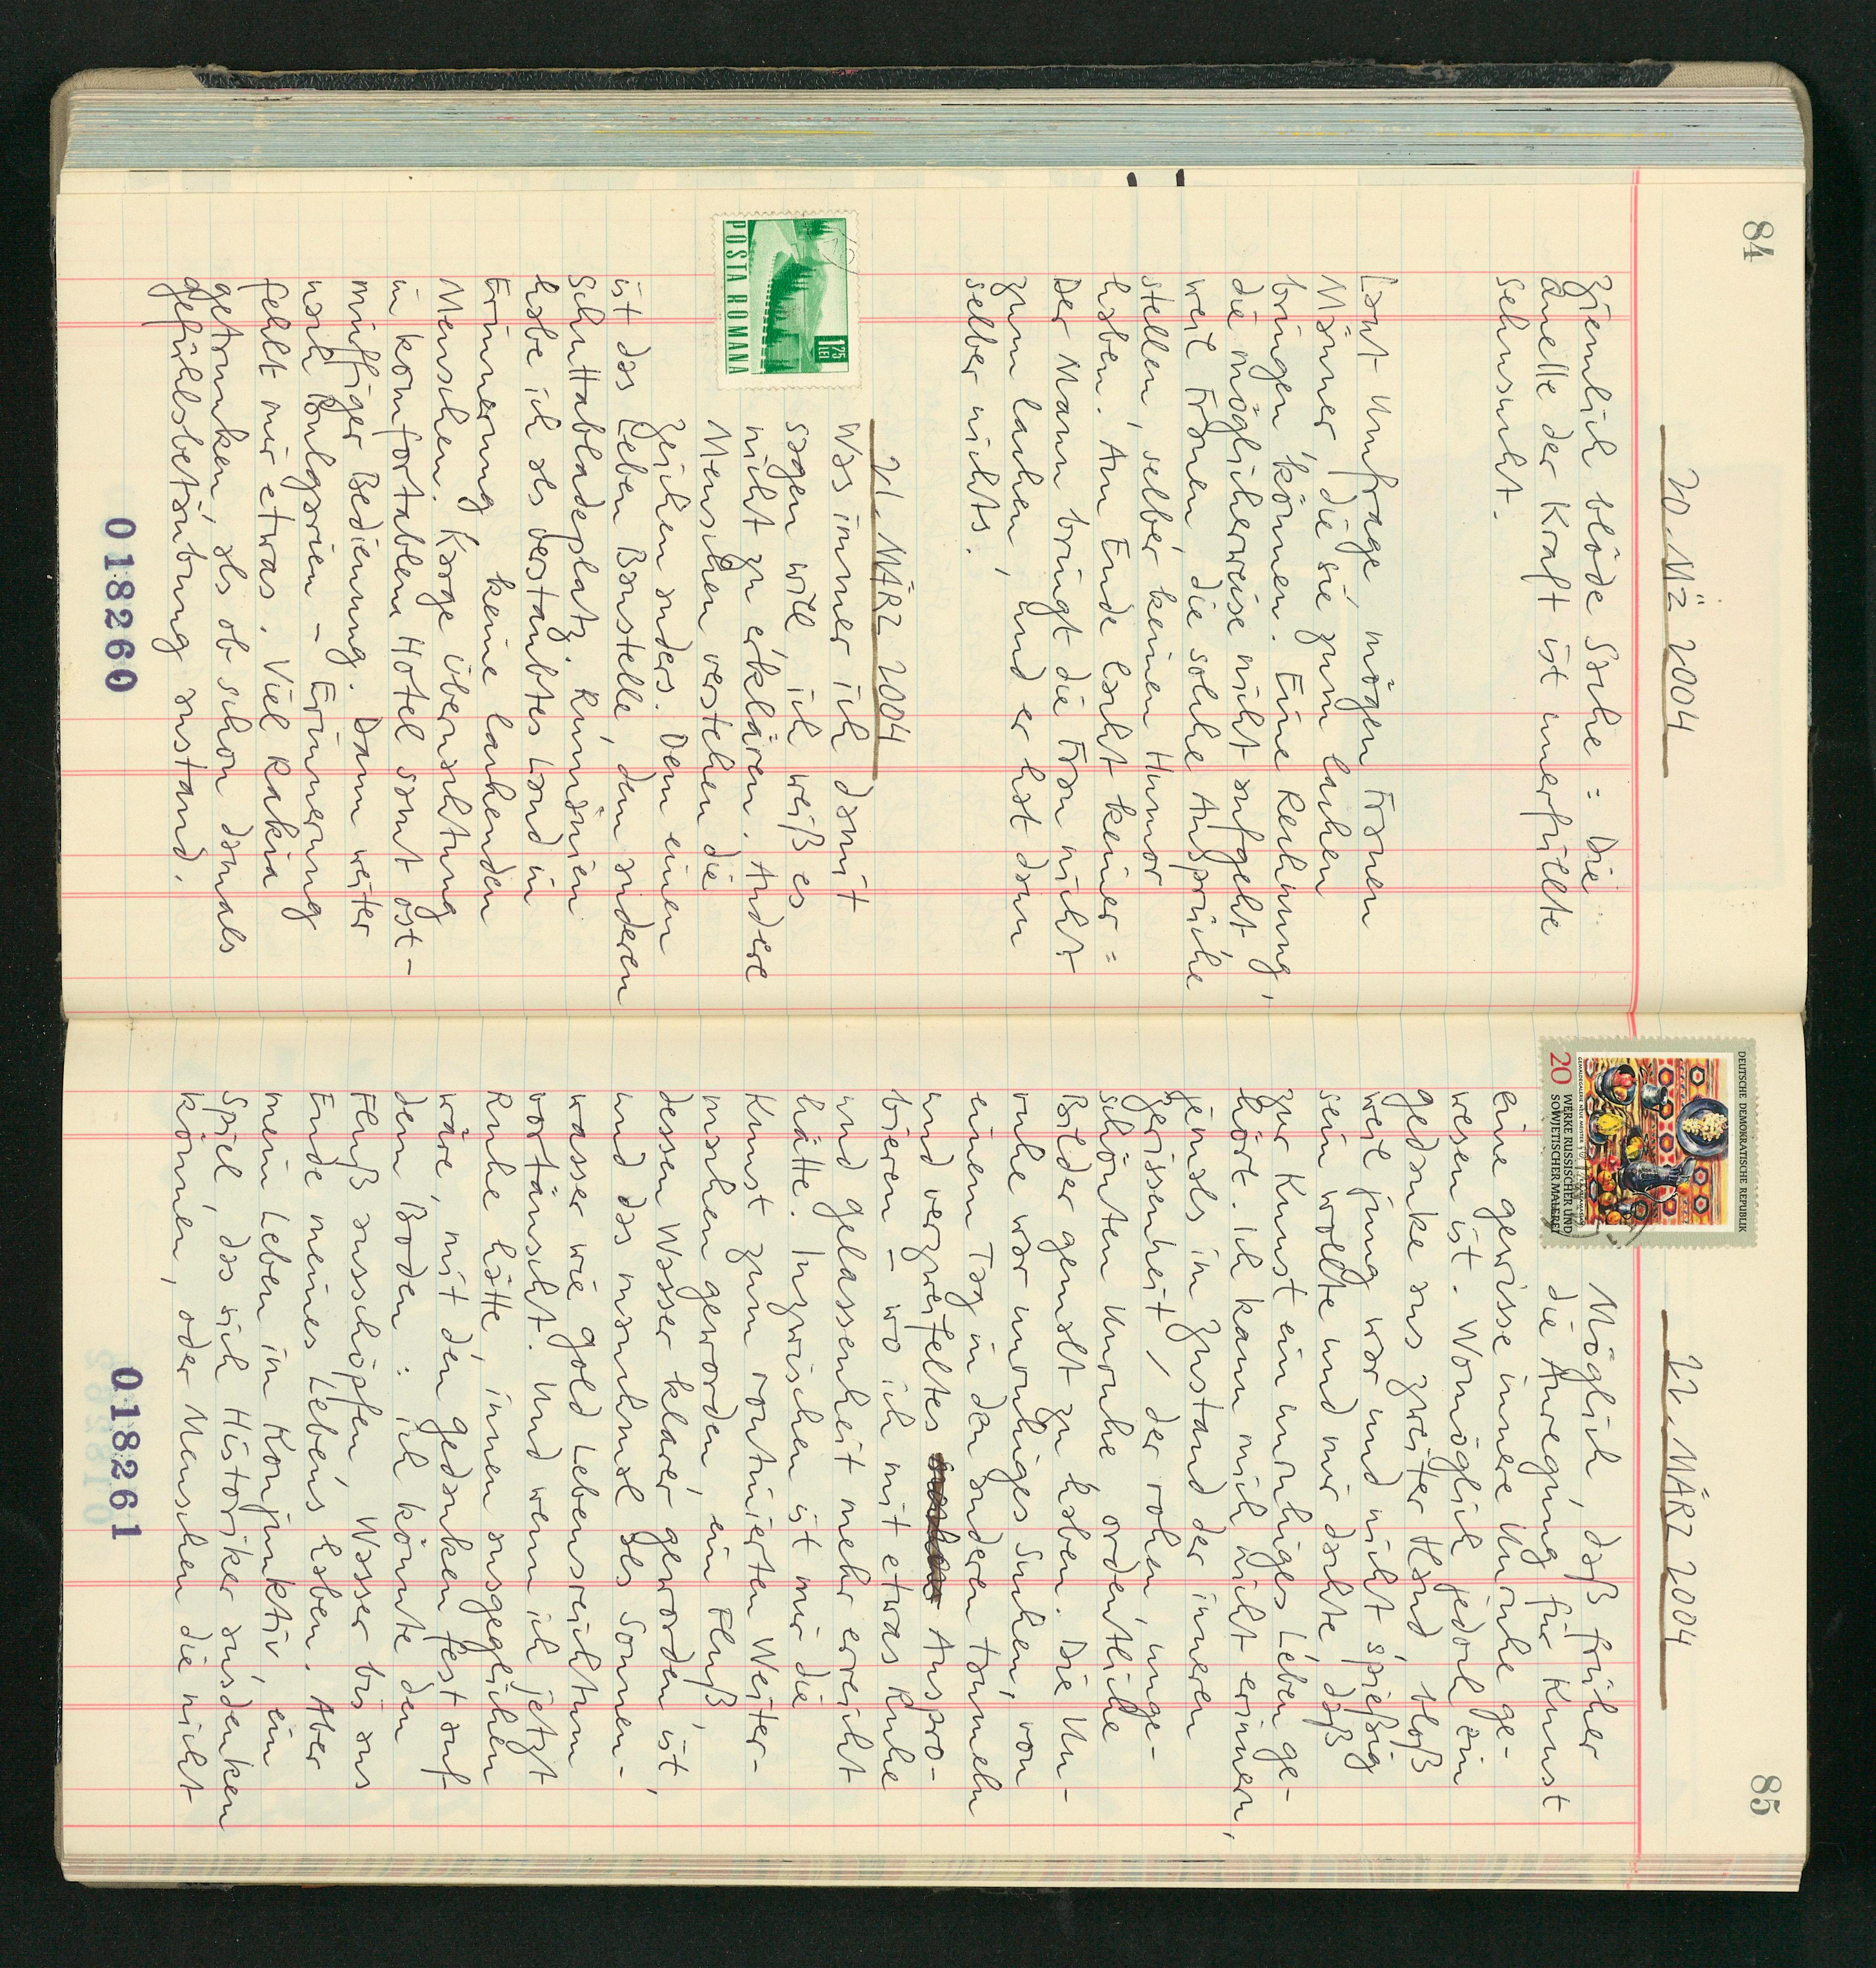 84
20. MÄ 2004
Ziemlich blöde Sache: Die
Quelle der Kraft ist unerfüllte
Sehnsucht.
Laut Umfrage, mögen Frauen
Männer, die sie zum lachen
bringen können. Eine Rechnung,
die möglicherweise nicht aufgeht,
weil Frauen, die solche Ansprüche
stellen, selber keinen Humor
haben. Am Ende lacht keiner:
Der Mann bringt die Frau nicht
zum lachen, und er hat dann
selber nichts.
21. MÄRZ 2004
POSTA ROMANA
1 75
LEI
Was immer ich damit
sagen will, ich weiß es
nicht zu erklären. Andere
Menschen verstehen die
Zeichen anders. Dem einen
ist das Leben Baustelle, dem anderen
Schuttabladeplatz. Rumänien
habe ich als verstaubtes Land in
Erinnerung, keine lachenden
Menschen. Karge Übernachtung
in komfortablem Hotel samt ost-
muffiger Bedienung. Dann weiter
nach Bulgarien – Erinnerung
fehlt mir etwas. Viel Rakia
getrunken, als ob schon damals
Gefühlsbetäubung anstand.
018260
85
DEUTSCHE DEMOKRATISCHE REPUBLIK
20
WERKE RUSSISCHER UND
SOWJETISCHER MALEREI
22. MÄRZ 2004
Möglich, daß früher
die Anregung für Kunst
eine gewisse innere Unruhe ge-
wesen ist. Womöglich jedoch ein
Gedanke aus zweiter Hand, bloß
weil jung war und nicht spießig
sein wollte und mir dachte, daß
zur Kunst ein unruhiges Leben ge-
hört. Ich kann mich nicht erinnern,
jemals im Zustand der inneren
Zerissenheit / der rohen, unge-
schönten Unruhe ordentliche
Bilder gemalt zu haben. Die Un-
ruhe war unruhiges Suchen, von
einem Tag in den anderen taumeln
und verzweifeltes Auspro-
bieren – wo ich mit etwas Ruhe
und Gelassenheit mehr erreicht
hätte. Inzwischen ist mir die
Kunst zum routinierten Weiter-
machen geworden, ein Fluß,
dessen Wasser klarer geworden ist,
und das manchmal das Sonnen-
wasser wie Gold Lebensreichtum
vortäuscht. Und wenn ich jetzt
Ruhe hätte, innen ausgeglichen
wäre, mit den Gedanken fest auf
dem Boden: ich könnte den
Fluß ausschöpfen, Wasser bis ans
Ende meines Lebens haben. Aber
mein Leben im Konjunktiv, ein
Spiel, das sich Historiker ausdenken
können, oder Menschen die nicht
018261